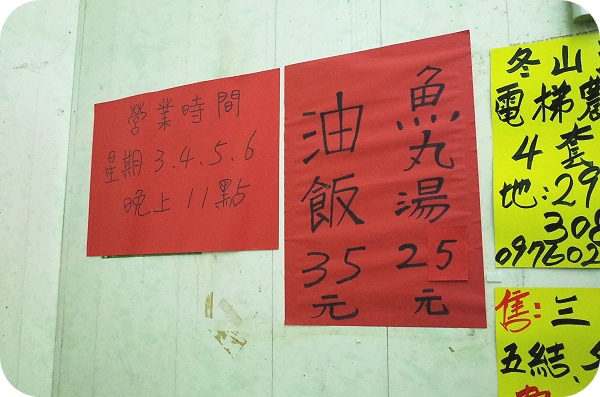 營業時間
星期3.4.5.6
晚上11點
魚丸湯25元
油飯35元
冬山
電梯農
4套
地:29
308
097602
售:三
五結、